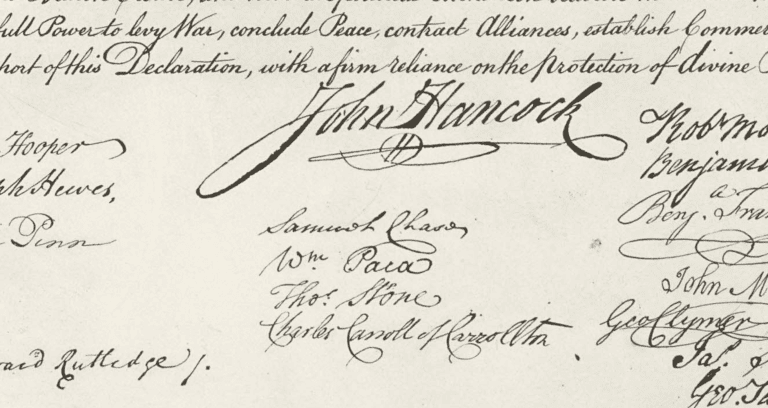 full Power to levy War, conclude Peace, contract Alliances, establish Commer
port of this Declaration, with a firm reliance on the Protection of divine
John Hancock
Hooper
ph Hewes,
Penn
Samuel Chase
Wm. Paca
Thos. Stone
Charles Carroll of Carrollton
ward Rutledge /.
Robt Mo
Benjami
Benj. Fra
John M
Geo Clymer
Jas.
Geo. Ta